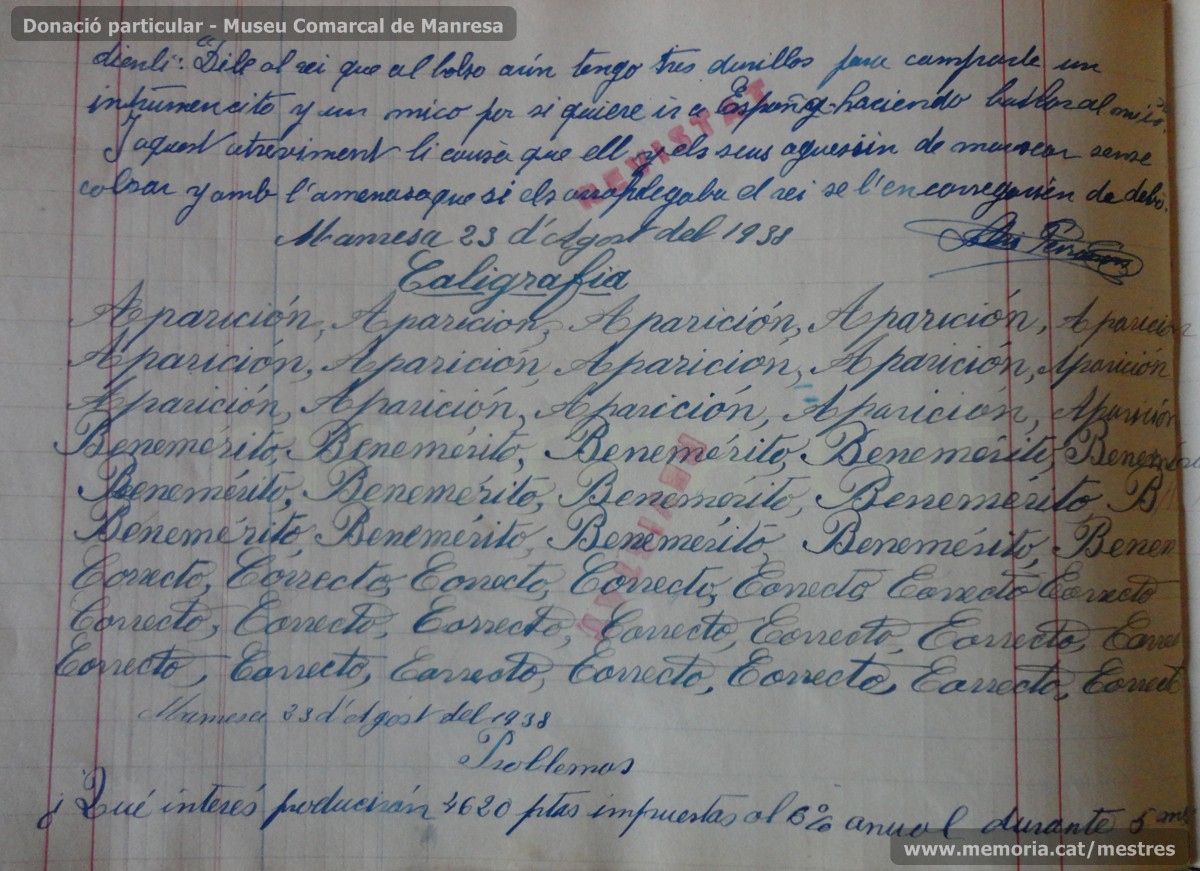 Donació particular - Museu Comarcal de Manresa
dienli: "Dile al rei que al bolso aún tengo tres durillos para comprarle un
intrumencito y un mico por si quiere ir a España haciendo bailar al mico."
I aquest atreviment li causà que ell y els seus aguesin de marxar sense
cobrar y amb l'amenasa que si els arraplegaba el rei se l'en
REVISAT
Manresa 23 d'Agost del 1938
Caligrafia
Aparición, Aparición, Aparición, Aparición, Aparición
Aparición, Aparición, Aparición, Aparición, Aparición
Aparición, Aparición, Aparición, Aparición, Aparición
Benemérito, Benemérito, Benemérito, Benemérito, Benemérito
Benemérito, Benemérito, Benemérito, Benemérito, B
Benemérito, Benemérito, Benemérito, Benemérito, Benem
Correcto, Correcto, Correcto, Correcto, Correcto Correcto Correcto
Correcto, Correcto, Correcto, Correcto, Correcto, Correcto, Correc
Correcto, Correcto, Correcto, Correcto, Correcto, Correcto, Correct
Manresa 23 d'Agost del 1938
Problemas
¿Qué interés producirán 4620 ptas impuestas al 6% anual durante 5
www.memoria.cat/mestres